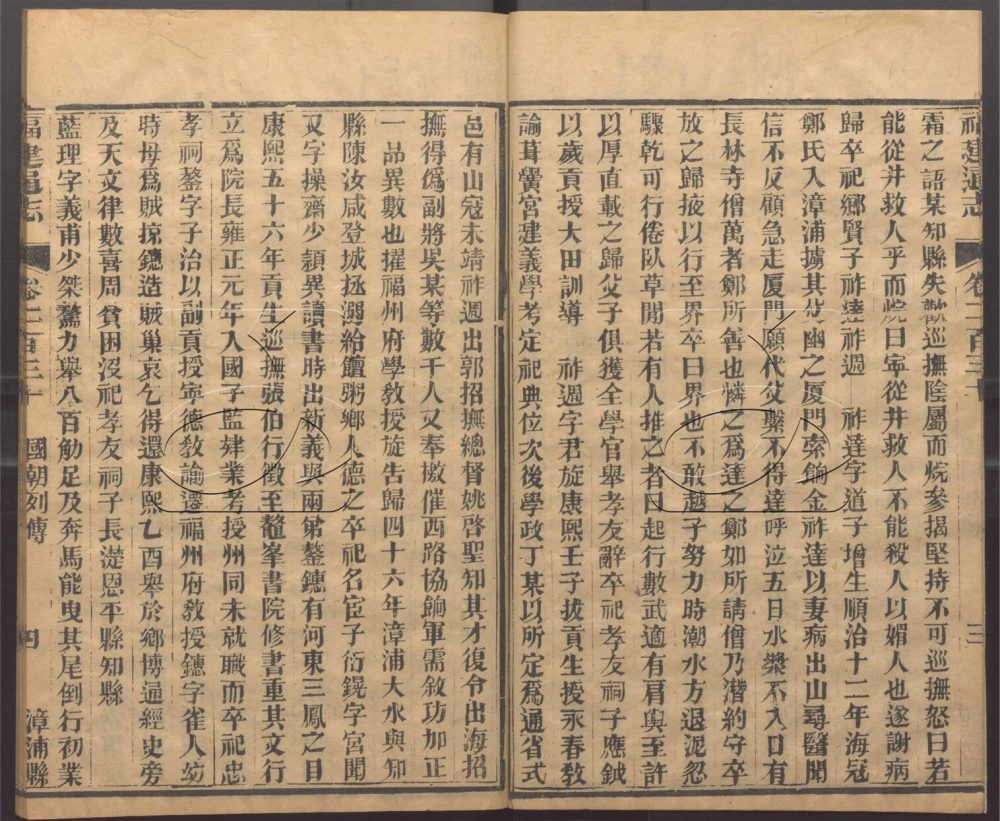 福建通志
卷二百三十
三
霜之語某知縣失歡巡撫陰屬而烷參揭堅持不可巡撫怒曰若
能從井救人乎而烷曰寧從井救人不能殺人以媚人也遂謝病
歸卒祀鄉賢子祚達祚週　祚達字道子增生順治十二年海寇
鄭氏入漳浦據其父幽之厦門索餉金祚達以妻病出山尋醫聞
信不反顧急走厦門願代父繫不得達呼泣五日水漿不入口有
長林寺僧萬者鄭所善也憐之爲達之鄭如所請僧乃潛約守卒
放之歸掖以行至界卒曰界也不敢越子努力時潮水方退泥忽
驟乾可行倦臥草間若有人推之者曰起行數武適有肩輿至許
以厚直載之歸父子俱獲全學官舉孝友辭卒祀孝友祠子應鉞
以歲貢授大田訓導　祚週字君旋康熙壬子拔貢生授永春敎
諭葺黌宮建義學考定祀典位次後學政丁某以所定爲通省式
邑有山寇未靖祚週出郭招撫總督姚啓聖知其才復令出海招
撫得僞副將吳某等數千人又奉檄催西路協餉軍需敘功加正
一品異數也擢福州府學敎授旋告歸四十六年漳浦大水與知
縣陳汝咸登城拯溺給饘粥鄉人德之卒祀名宦子衍鎤字宮聞
又字操齋少穎異讀書時出新義與兩弟鏊鏸有河東三鳳之目
康熙五十六年貢生巡撫張伯行徵至鼇峯書院修書重其文行
立爲院長雍正元年入國子監肄業考授州同未就職而卒祀忠
孝祠鏊字子治以副貢授寧德敎諭遷福州府敎授鏸字雀人幼
時母爲賊掠鏸造賊巢哀乞得還康熙乙酉舉於鄉博通經史旁
及天文律數喜周貧困沒祀孝友祠子長濋恩平縣知縣
藍理字義甫少桀驁力舉八百觔足及奔馬能曳其尾倒行初業
福建通志
卷二百三十
國朝列傳
四
漳浦縣